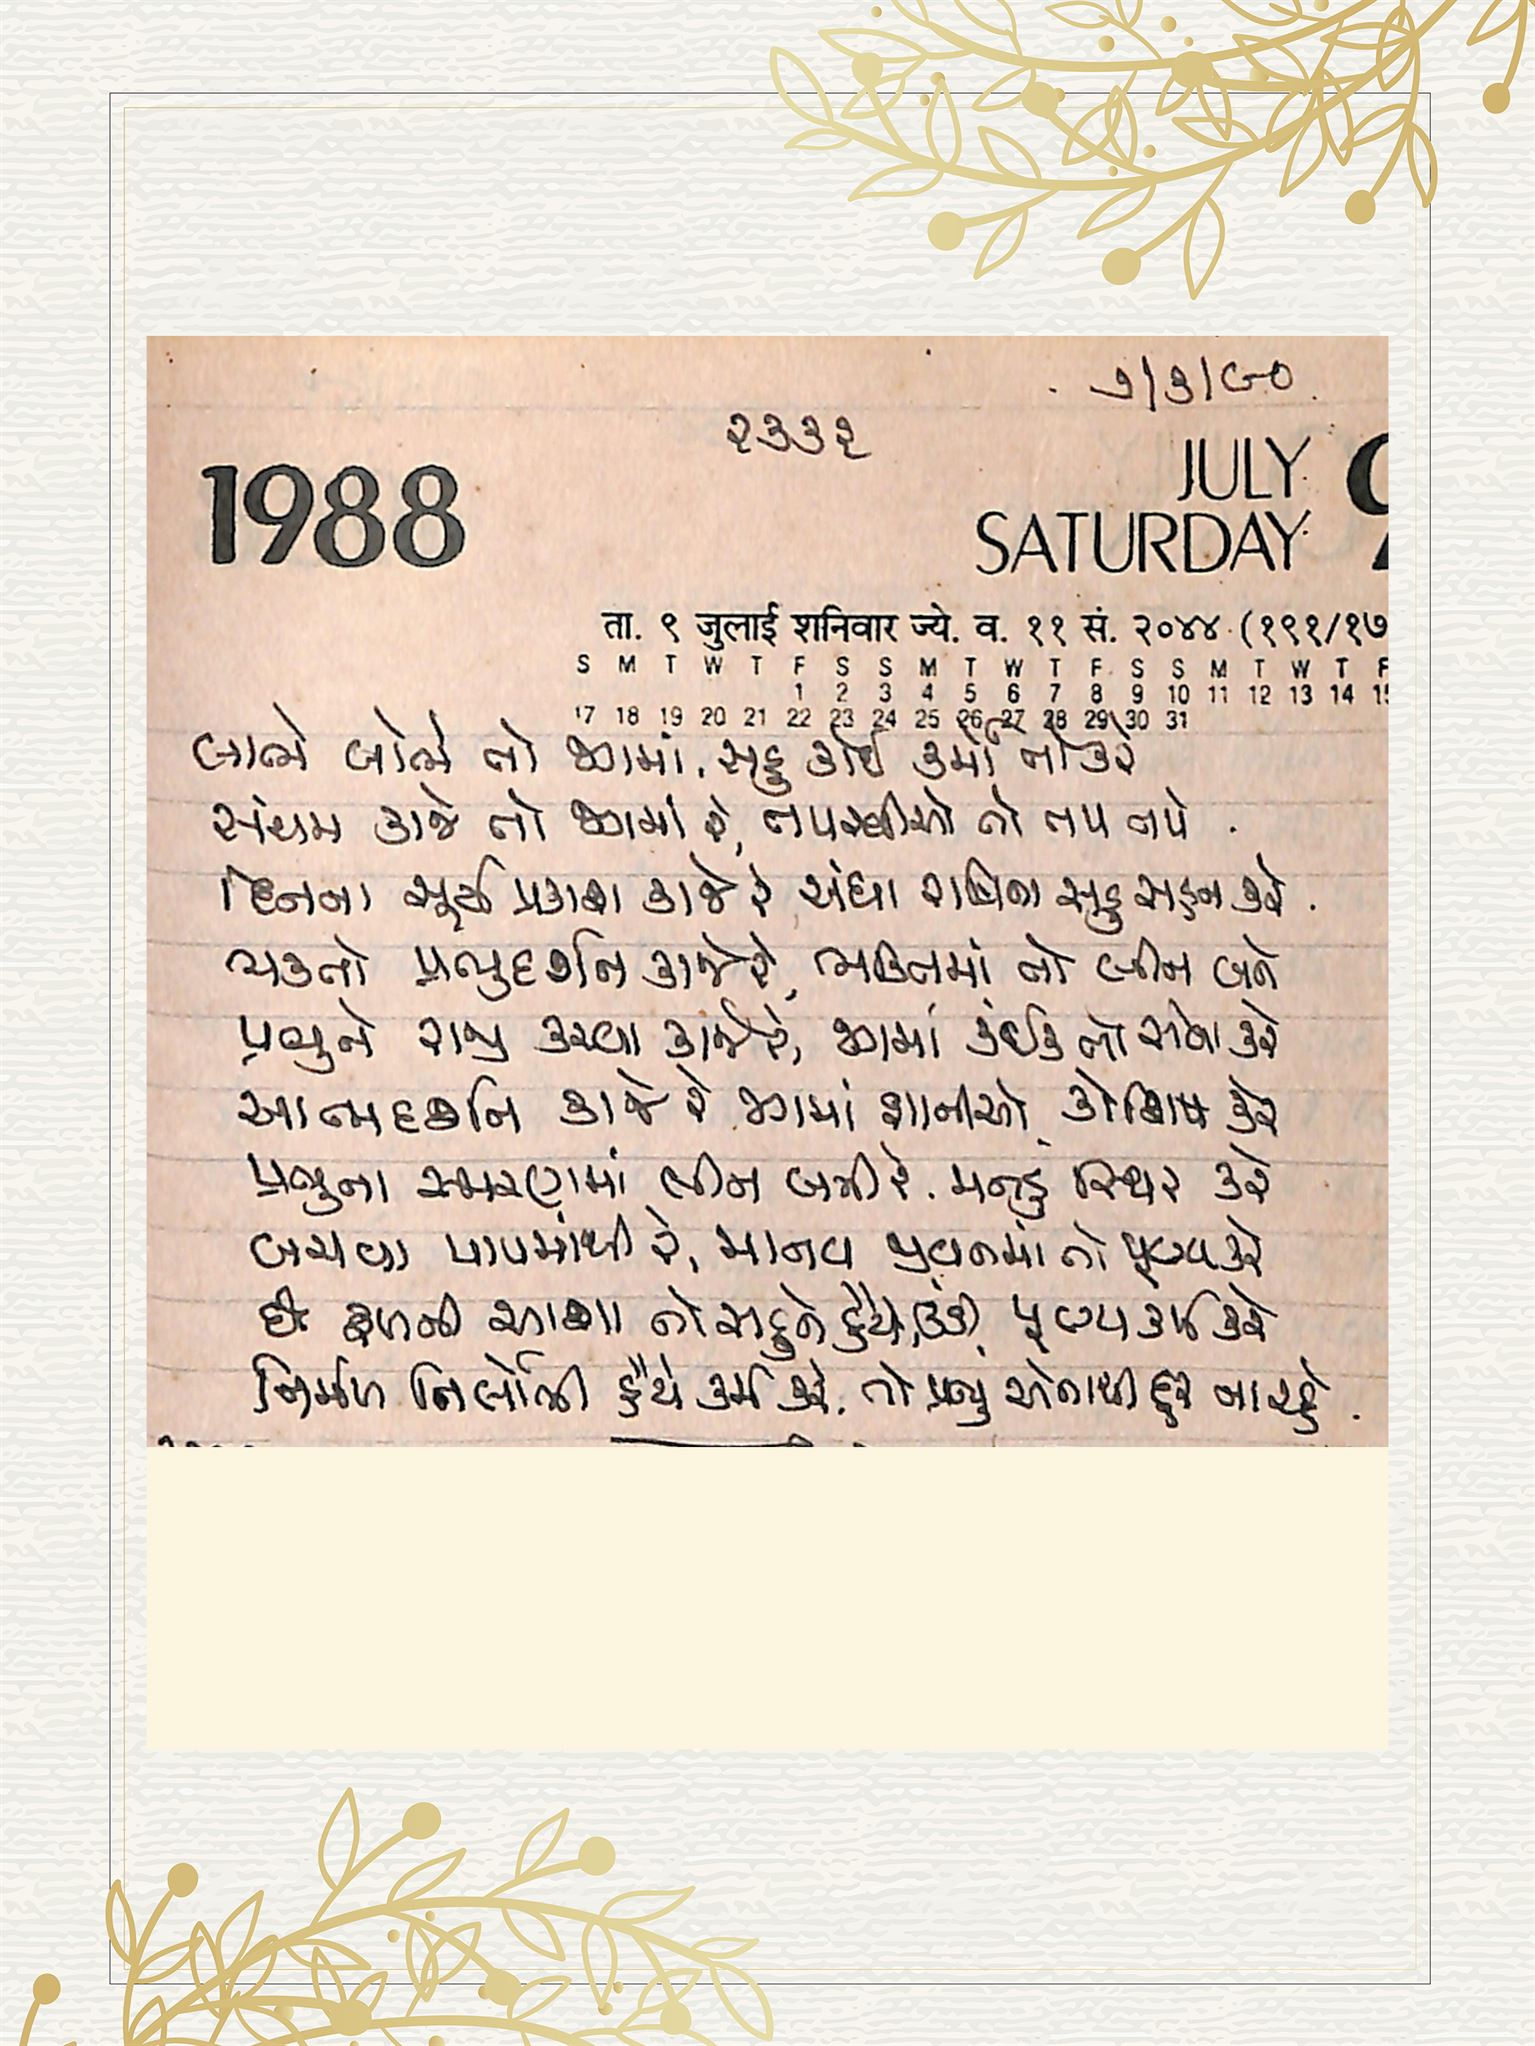 ૭/૩/૯૦
૨૩૩૨
1988
JULY
SATURDAY 9
ता. ९ जुलाई शनिवार ज्ये. व. ११ सं. २०४४ (१९१/१७
S M T W T F S S M T W T F S S M T W T F
1 2 3 4 5 6 7 8 9 10 11 12 13 14 15
17 18 19 20 21 22 23 24 25 26 27 28 29 30 31
લાભે લોભે તો જગમાં, સહુ કોઈ કર્મો તો કરે
સંયમ કાજે તો જગમાં રે, તપસ્વીઓ તો તપ તપે
દિનના સૂર્ય પ્રકાશ કાજે રે અંધારા રાત્રિના સહુ સહન કરે
ભક્તો પ્રભુદર્શન કાજે રે, ભક્તિમાં તો લીન બને
પ્રભુને રાજી કરવા કાજે રે, જગમાં કંઈક તો સેવા કરે
આત્મદર્શન કાજે રે જગમાં જ્ઞાનીઓ, કોશિષ કરે
પ્રભુના સ્મરણમાં લીન બની રે, મનડું સ્થિર કરે
બચવા પાપમાંથી રે, માનવ જીવનમાં તો પુણ્ય કરે
છે ફળની આશા તો સહુને હૈયે, પુણ્ય કર્મ કરે
નિર્મળ નિર્લોભી હૈયે કર્મ કરે, તો પ્રભુ એનાથી દૂર ના રહે